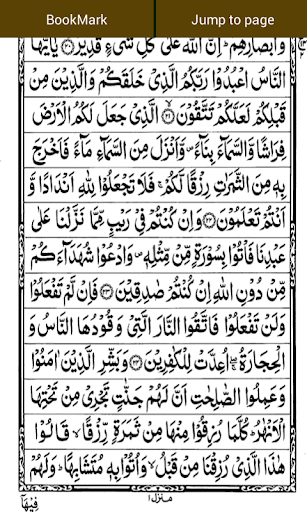 BookMark
Jump to page
وَاَبْصَارِهِمْ ؕ اِنَّ اللّٰهَ عَلٰی كُلِّ شَیْءٍ قَدِیْرٌ ﴿۲۰﴾ یٰۤاَیُّهَا
النَّاسُ اعْبُدُوْا رَبَّكُمُ الَّذِیْ خَلَقَكُمْ وَالَّذِیْنَ مِنْ
قَبْلِكُمْ لَعَلَّكُمْ تَتَّقُوْنَ ﴿۲۱﴾ الَّذِیْ جَعَلَ لَكُمُ الْاَرْضَ
فِرَاشًا وَّالسَّمَآءَ بِنَآءً ۪ وَّاَنْزَلَ مِنَ السَّمَآءِ مَآءً فَاَخْرَجَ
بِهٖ مِنَ الثَّمَرٰتِ رِزْقًا لَّكُمْ ۚ فَلَا تَجْعَلُوْا لِلّٰهِ اَنْدَادًا وَّ
اَنْتُمْ تَعْلَمُوْنَ ﴿۲۲﴾ وَاِنْ كُنْتُمْ فِیْ رَیْبٍ مِّمَّا نَزَّلْنَا عَلٰی
عَبْدِنَا فَاْتُوْا بِسُوْرَةٍ مِّنْ مِّثْلِهٖ ۪ وَادْعُوْا شُهَدَآءَكُمْ
مِّنْ دُوْنِ اللّٰهِ اِنْ كُنْتُمْ صٰدِقِیْنَ ﴿۲۳﴾ فَاِنْ لَّمْ تَفْعَلُوْا
وَلَنْ تَفْعَلُوْا فَاتَّقُوا النَّارَ الَّتِیْ وَقُوْدُهَا النَّاسُ وَ
الْحِجَارَةُ ۖۚ اُعِدَّتْ لِلْكٰفِرِیْنَ ﴿۲۴﴾ وَبَشِّرِ الَّذِیْنَ اٰمَنُوْا
وَعَمِلُوا الصّٰلِحٰتِ اَنَّ لَهُمْ جَنّٰتٍ تَجْرِیْ مِنْ تَحْتِهَا
الْاَنْهٰرُ ؕ كُلَّمَا رُزِقُوْا مِنْهَا مِنْ ثَمَرَةٍ رِّزْقًا ۙ قَالُوْا
هٰذَا الَّذِیْ رُزِقْنَا مِنْ قَبْلُ ۙ وَاُتُوْا بِهٖ مُتَشَابِهًا ؕ وَلَهُمْ
فِیْهَاۤ
منزل ۱